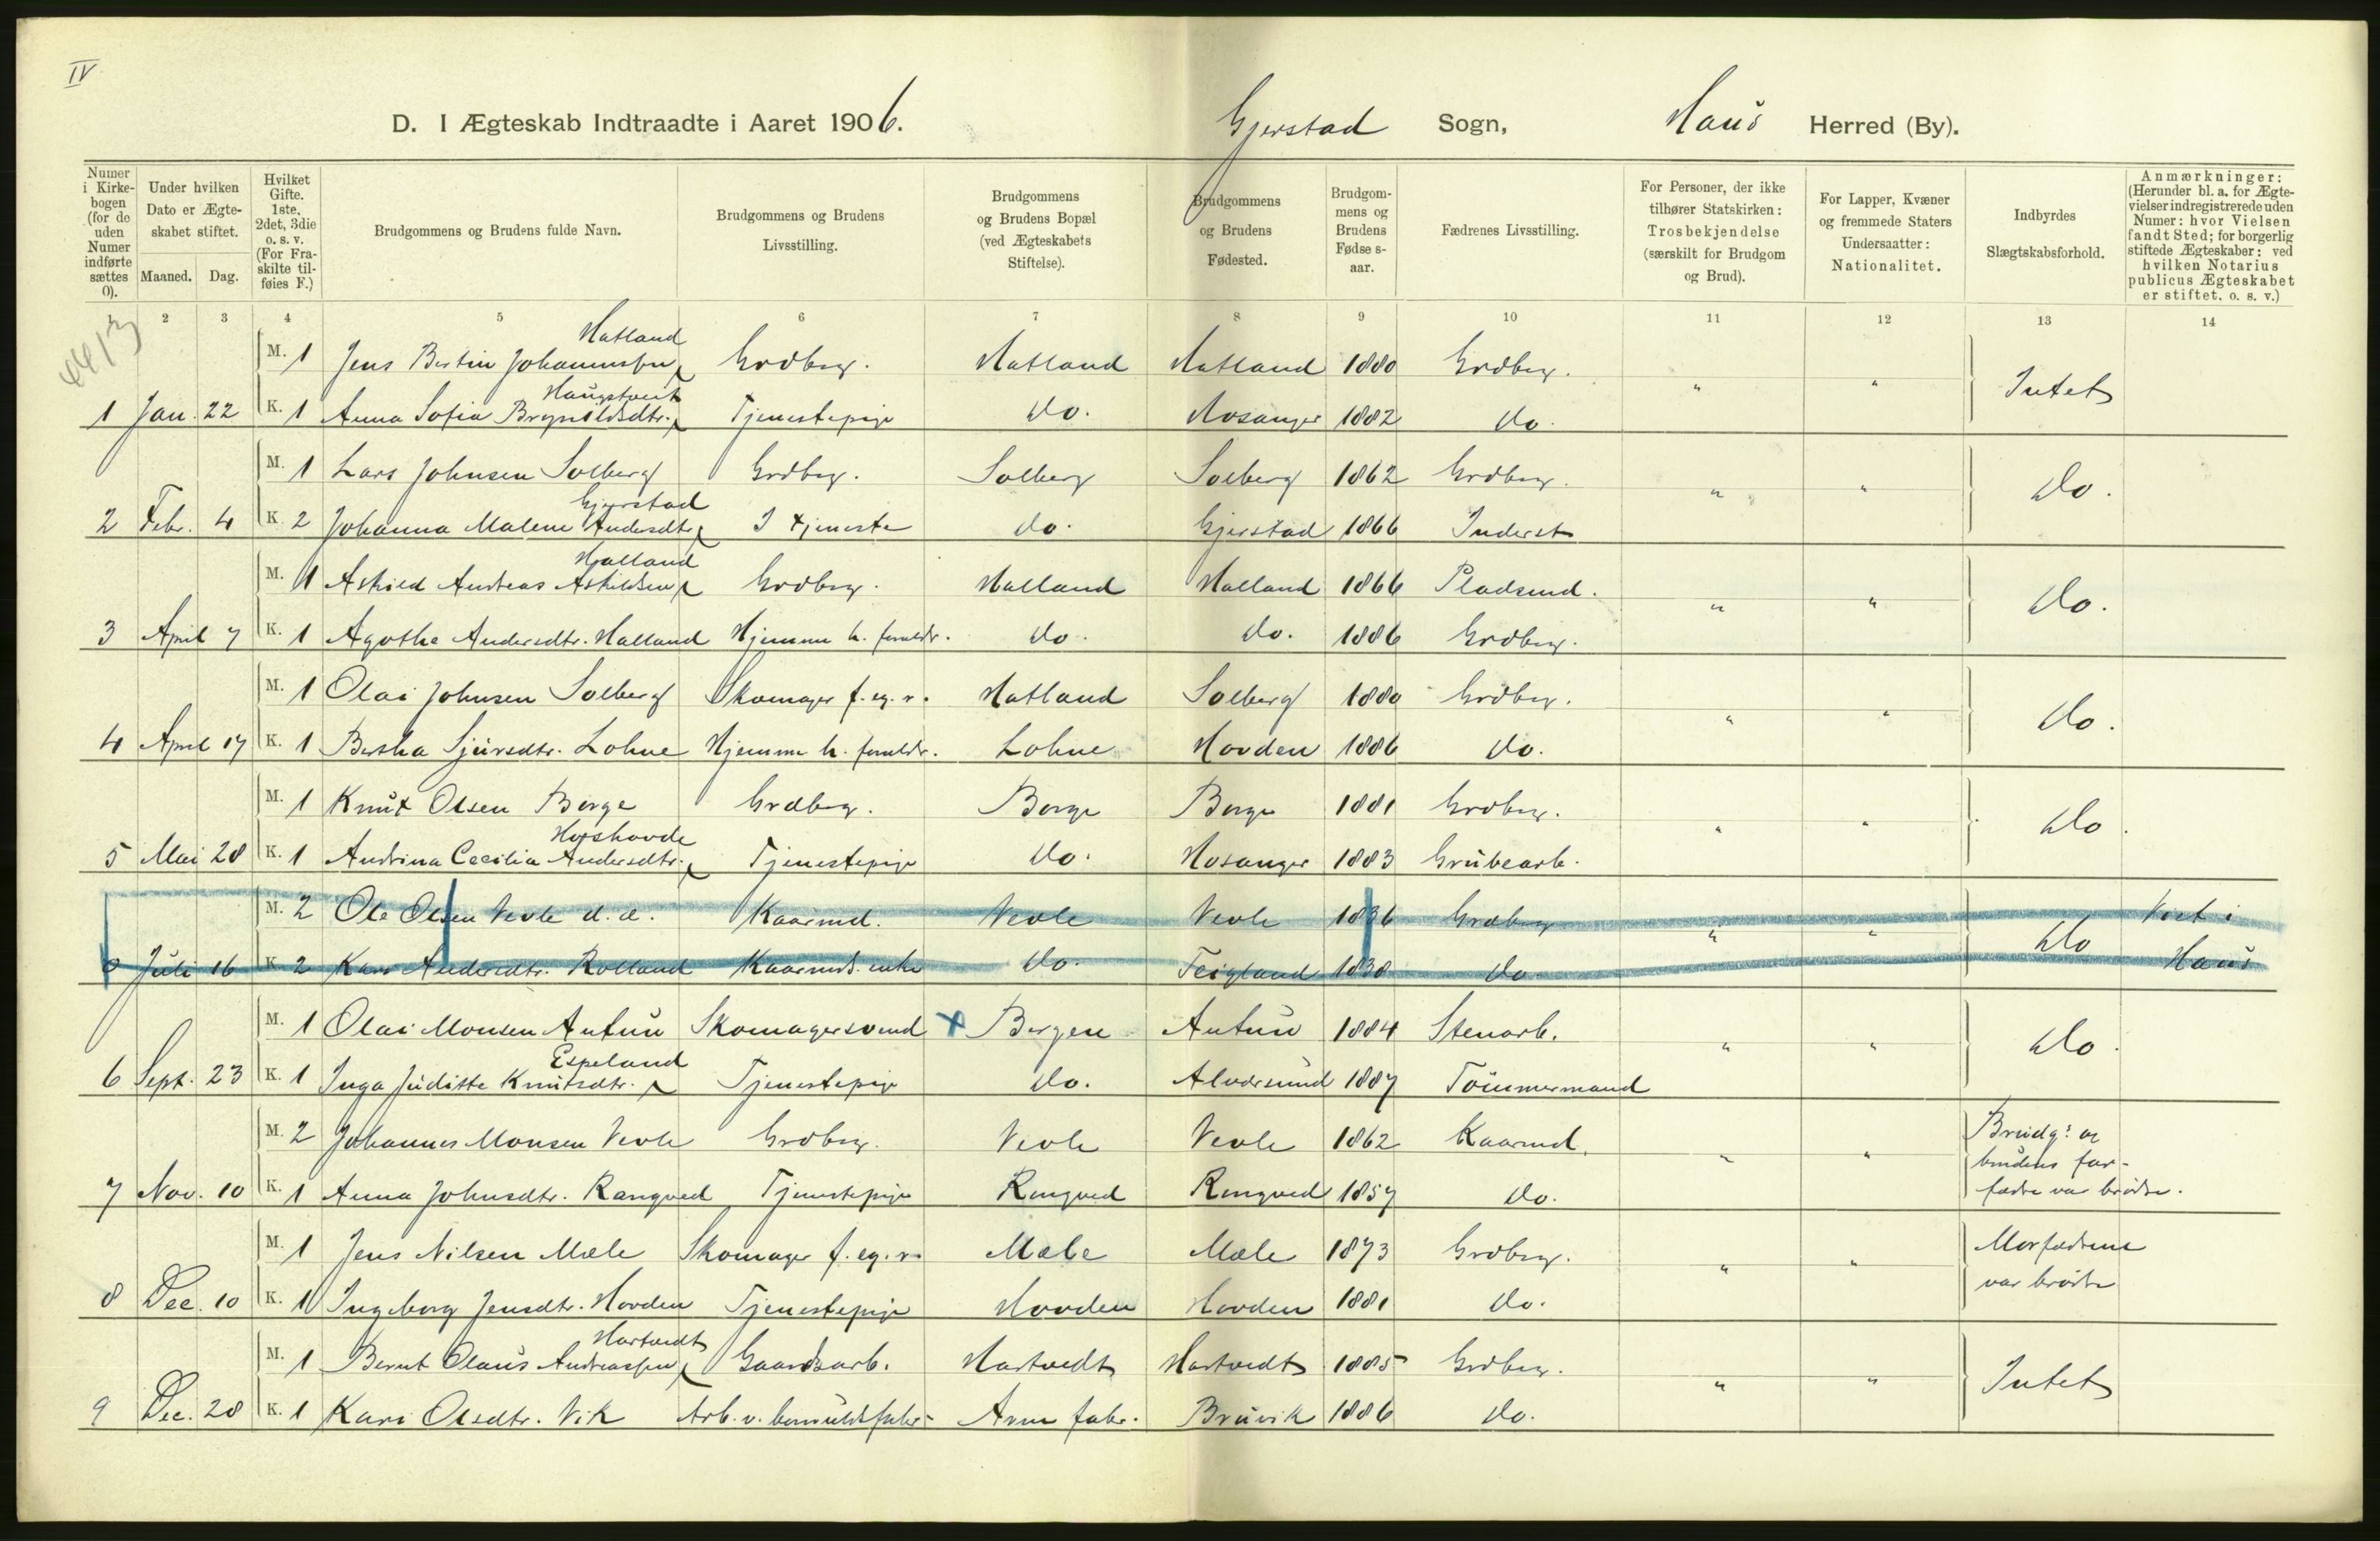 IV
D. I Ægteskab Indtraadte i Aaret 1906. Gjerstad Sogn, Haus Herred (By).
Numer i Kirke-bogen (for de uden Numer indførte sættes 0).
Under hvilken Dato er Ægte-skabet stiftet.
Maaned. Dag.
Hvilket Gifte. 1ste, 2det, 3die o. s. v. (For Fra-skilte til-føies F.)
Brudgommens og Brudens fulde Navn.
Brudgommens og Brudens Livsstilling.
Brudgommens og Brudens Bopæl (ved Ægteskabets Stiftelse).
Brudgommens og Brudens Fødested.
Brudgom-mens og Brudens Fødse s-aar.
Fædrenes Livsstilling.
For Personer, der ikke tilhører Statskirken: Trosbekjendelse (særskilt for Brudgom og Brud).
For Lapper, Kvæner og fremmede Staters Undersaatter: Nationalitet.
Indbyrdes Slægtskabsforhold.
Anmærkninger: (Herunder bl. a. for Ægte-vielser indregistrerede uden Numer: hvor Vielsen fandt Sted; for borgerlig stiftede Ægteskaber: ved hvilken Notarius publicus Ægteskabet er stiftet, o. s. v.)
2 3 4 5 6 7 8 9 10 11 12 13 14
Hatland
M. 1 Jens Bertin Johannessen Grdbrg. Hatland Hatland 1880 Grdbrg. " " Intet
Haugstveit
1 Jan. 22 K. 1 Anna Sofia Brynildsdtr. Tjenestepige do. Hosanger 1882 do.
M. 1 Lars Johnsen Solberg Grdbrg. Solberg Solberg 1862 Grdbrg. " " do.
Gjerstad
2 Febr. 4 K. 2 Johanna Malene Andersdtr. I tjeneste do. Gjerstad 1866 Inderst
Halland
M. 1 Askild Andreas Askildsen Grdbrg. Halland Halland 1866 Pladsmd. " " do.
3 April 7 K. 1 Agothe Andersdtr. Halland Hjemme h. foreldr. do. do. 1886 Grdbrg.
M. 1 Olai Johnsen Solberg Skomager f. eg. r. Hatland Solberg 1880 Grdbrg. " " do.
4 April 17 K. 1 Bertha Sjursdtr. Lohne Hjemme h. foreldr. Lohne Hovden 1886 do.
M. 1 Knut Olsen Borge Grdbrg. Borge Borge 1881 Grdbrg. " " do.
Hopshovde
5 Mai 28 K. 1 Andrina Cecilia Andersdtr. Tjenestepige do. Hosanger 1883 Grubearb.
M. 2 Ole Olsen Vevle d. æ. Kaarmd. Vevle Vevle 1836 Grdbrg " " do Viet i
0 Juli 16 K. 2 Kari Andersdtr. Rolland Kaarmds. enke do. Feigland 1838 do. Haus
M. 1 Olai Monsen Autun Skomagersvend x Bergen Autun 1884 Stenarb. " " do.
Espeland
6 Sept. 23 K. 1 Inga Juditte Knutsdtr. Tjenestepige do. Alversund 1887 Tömmermand
M. 2 Johannes Monsen Vevle Grdbrg. Vevle Vevle 1862 Kaarmd. " " Brudg's og
brudens far-
7 Nov. 10 K. 1 Anna Johnsdtr. Rangved Tjenestepige Rongved Rongved 1857 do. fædre var brødre.
M. 1 Jens Nilsen Mæle Skomager f. eg. r. Mæle Mæle 1873 Grdbrg. " " Morfædrene
8 Dec. 10 K. 1 Ingeborg Jensdtr. Hovden Tjenestepige Hovden Hovden 1881 do. var brødre
Hartvedt
M. 1 Bernt Olaus Andreassen Gaardsarb. Hartvedt Hartvedt 1885 Grdbrg. " " Intet
9 Dec. 28 K. 1 Kari Olsdtr. Vik Arb. v. bomuldsfabr. Arne fabr. Bruvik 1886 do.